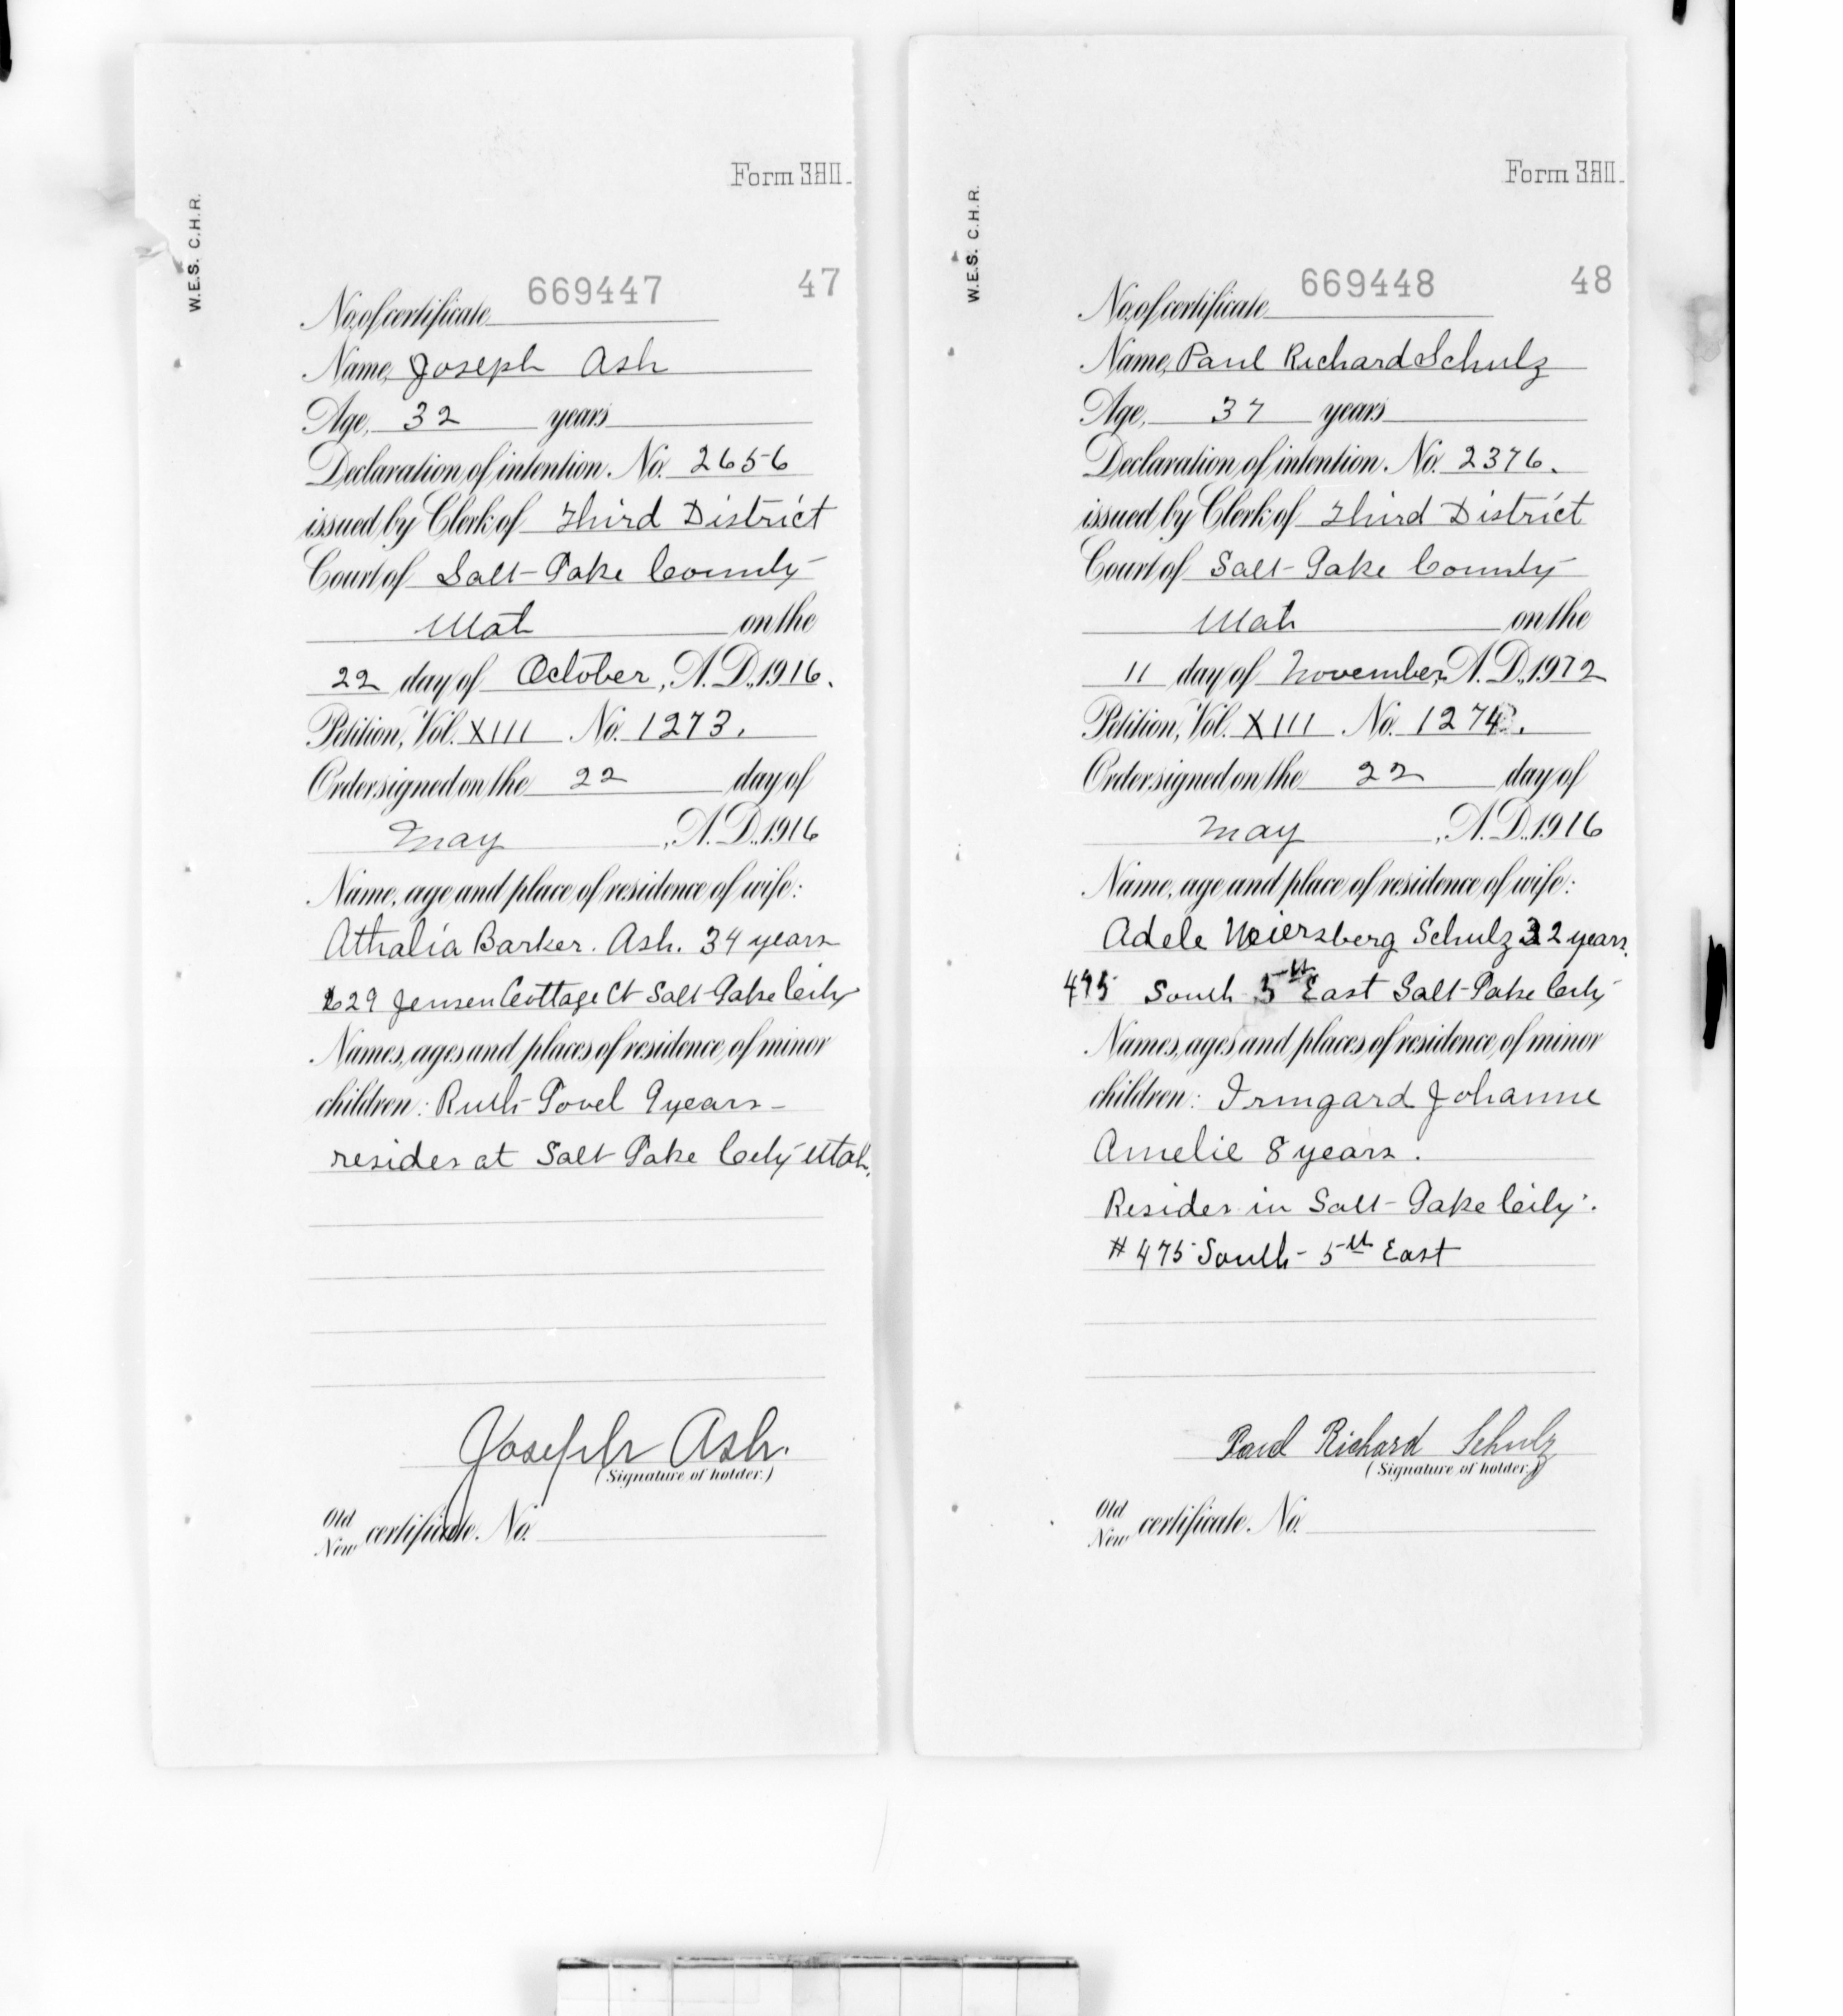 Form 380.
W.E.S. C.H.R.
No. of certificate 669447 47
Name, Joseph Ash
Age, 32 years
Declaration of intention. No. 2656
issued by Clerk of Third District
Court of Salt Lake County
Utah on the
22 day of October, A. D., 1916.
Petition, Vol. XIII No. 1273.
Order signed on the 22 day of
May, A. D., 1916
Name, age and place of residence of wife:
Athalia Barker. Ash. 34 years
629 Jensen Cottage Ct Salt Lake City
Names, ages and places of residence of minor
children: Ruth Lovel 9 years
resides at Salt Lake City Utah.
Joseph Ash.
(Signature of holder.)
Old
New certificate. No.
Form 380.
W.E.S. C.H.R.
No. of certificate 669448 48
Name, Paul Richard Schulz
Age, 37 years
Declaration of intention. No. 2376.
issued by Clerk of Third District
Court of Salt Lake County
Utah on the
11 day of November, A. D., 1912
Petition, Vol. XIII No. 1274.
Order signed on the 22 day of
May, A. D., 1916
Name, age and place of residence of wife:
Adele Schulz 32 years.
475 South 5th East Salt Lake City
Names, ages and places of residence of minor
children: Irmgard Johanne
Amelie 8 years.
Resides in Salt Lake City.
# 475 South - 5th East
Paul Richard Schulz
(Signature of holder.)
Old
New certificate. No.